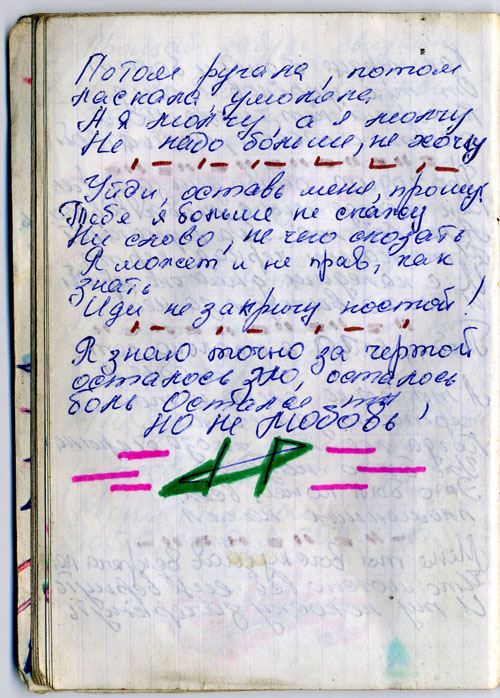 Потом ругала, потом
ласкала, умоляла,
А я молчу, а я молчу
Не надо больше, не хочу
Уйди, оставь меня, прошу!
Тебе я больше не скажу
Ни слово, не чего сказать
Я может и не прав, как
знать
Иди не закричу постой!
Я знаю точно за чертой
осталось зло, осталось
боль Осталась ты
НО НЕ Любовь!